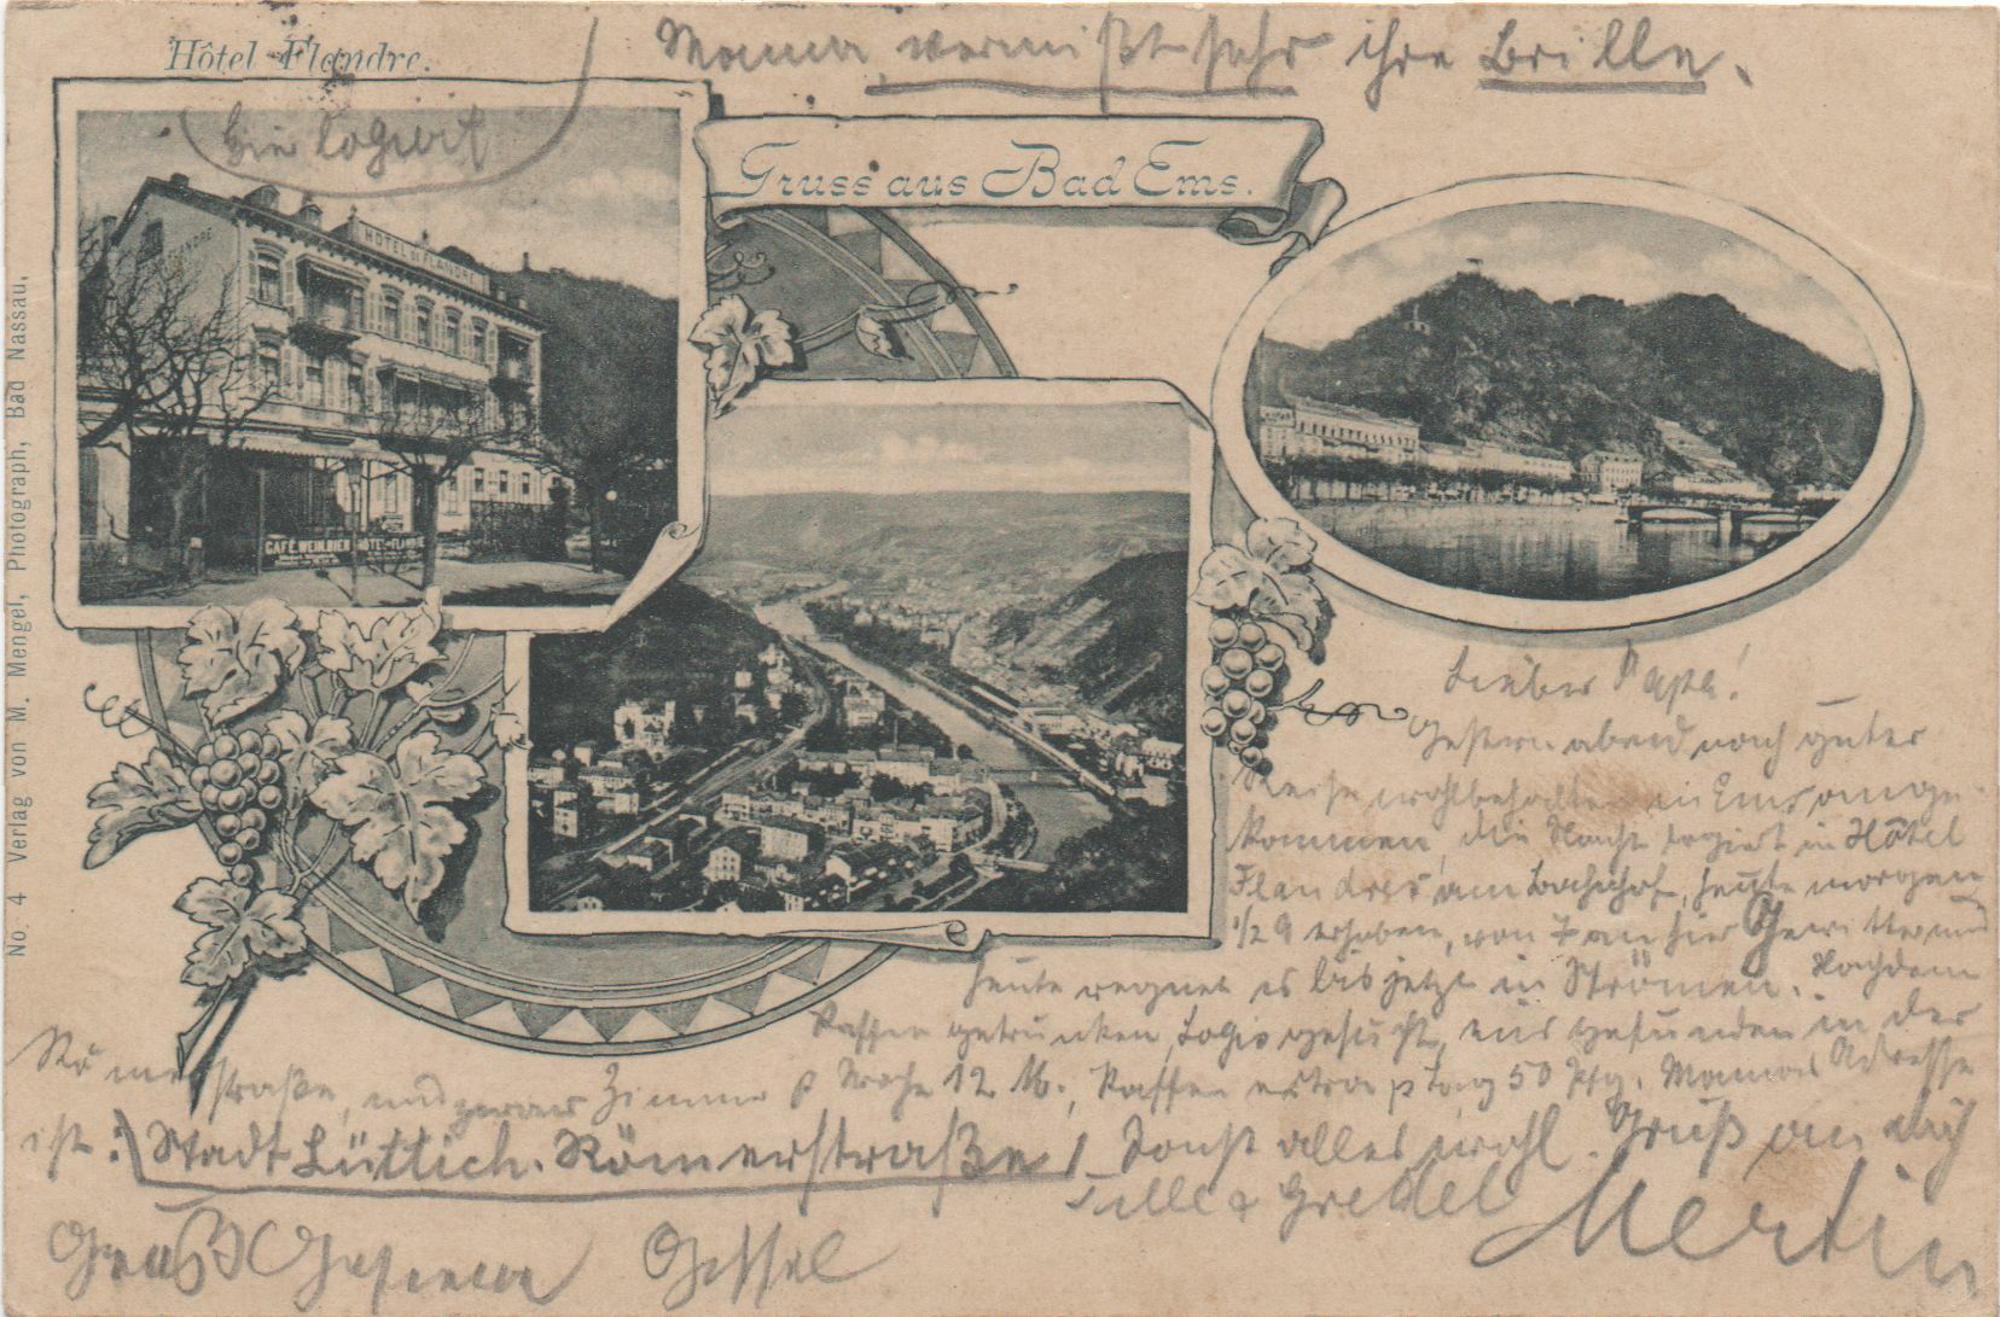 Hôtel Flandre.
Mama vermißt sehr ihre Brille.
hier logiert
Gruss aus Bad Ems.
FLANDRE
HOTEL DE FLANDRE
CAFÉ, WEIN, BIER HOTEL FLANDRE
No. 4 Verlag von M. Mengel, Photograph, Bad Nassau,
Lieber Papa!
Gestern abend nach guter
Reise wohlbehalten in Ems ange-
kommen, die Nacht logiert in Hôtel
Flandres am Bahnhof, heute morgen
1/2 9 erhoben, von 7 an hier Gewitter und
heute regnet es bis jetzt in Strömen. Nachdem
Kaffee getrunken, Logis gesucht, eins gefunden in der
Römerstraße, und zwar Zimmer p Woche 12 M., Kaffee extra p Tag 50 Pfg. Mamas Adresse
ist: Stadt Lüttich. Römerstraße! Sonst alles wohl. Gruß an dich
Tille & Gretel Martin
Gruß